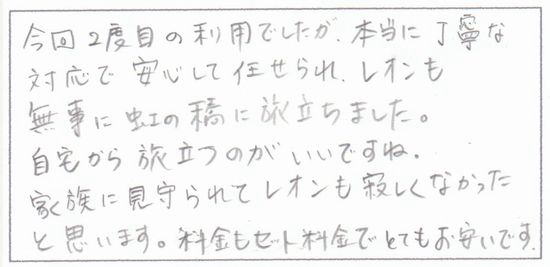 今回2度目の利用でしたが、本当に丁寧な
対応で安心して任せられ、レオンも
無事に虹の橋に旅立ちました。
自宅から旅立つのがいいですね。
家族に見守られてレオンも寂しくなかった
と思います。料金もセット料金でとてもお安いです。